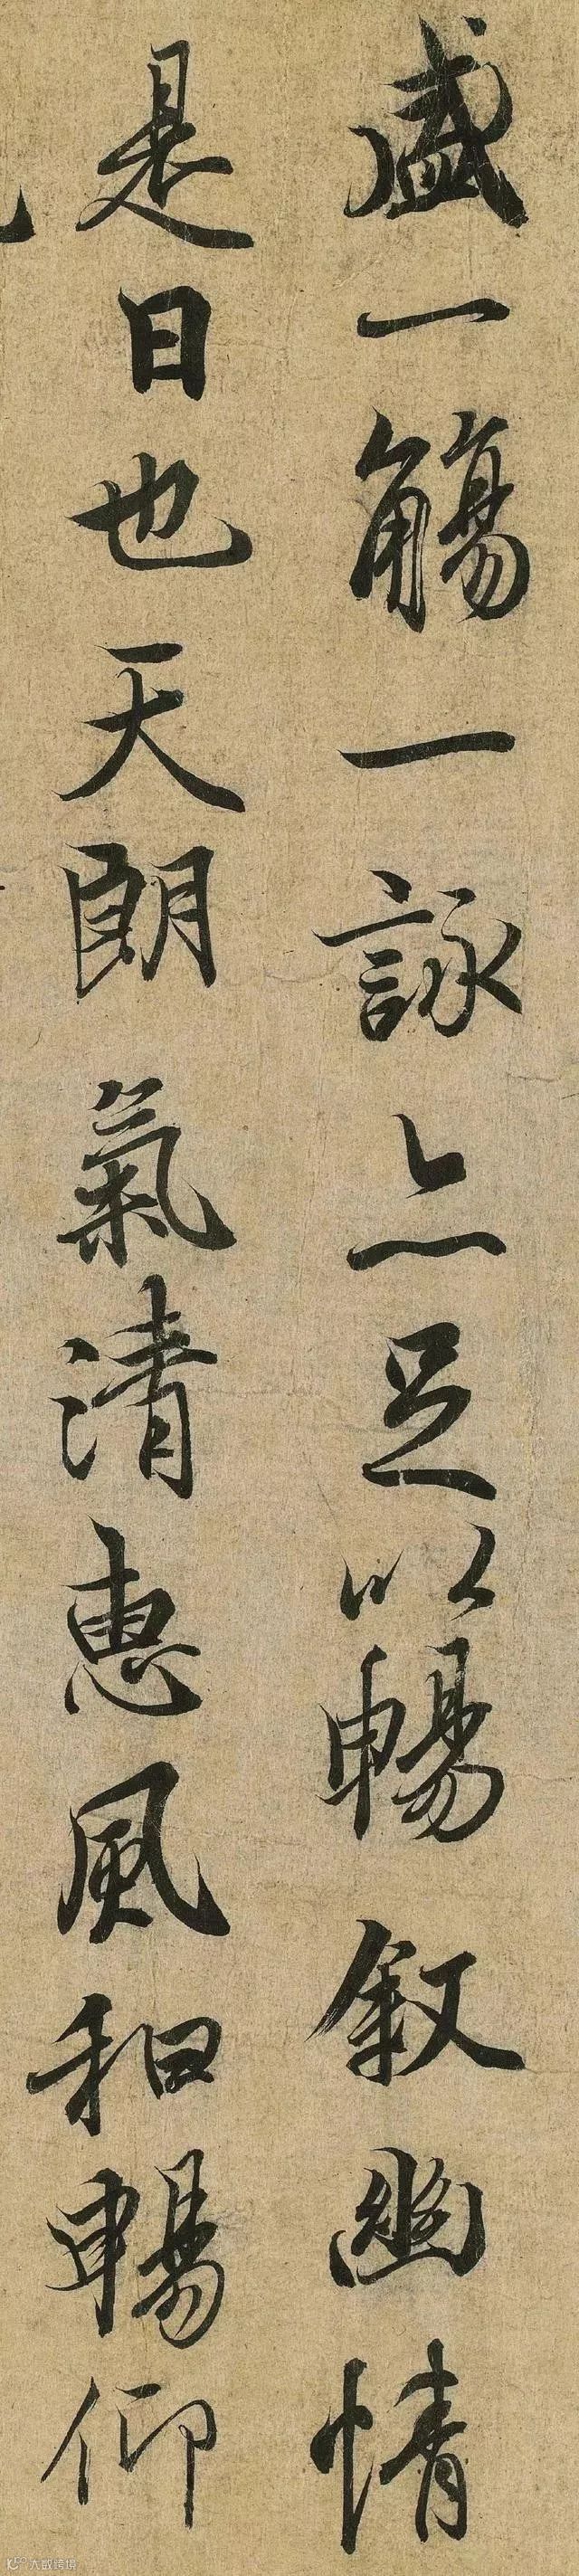 盛一觴一詠亦足以暢敘幽情
是日也天朗氣清惠風和暢仰
大数跨境